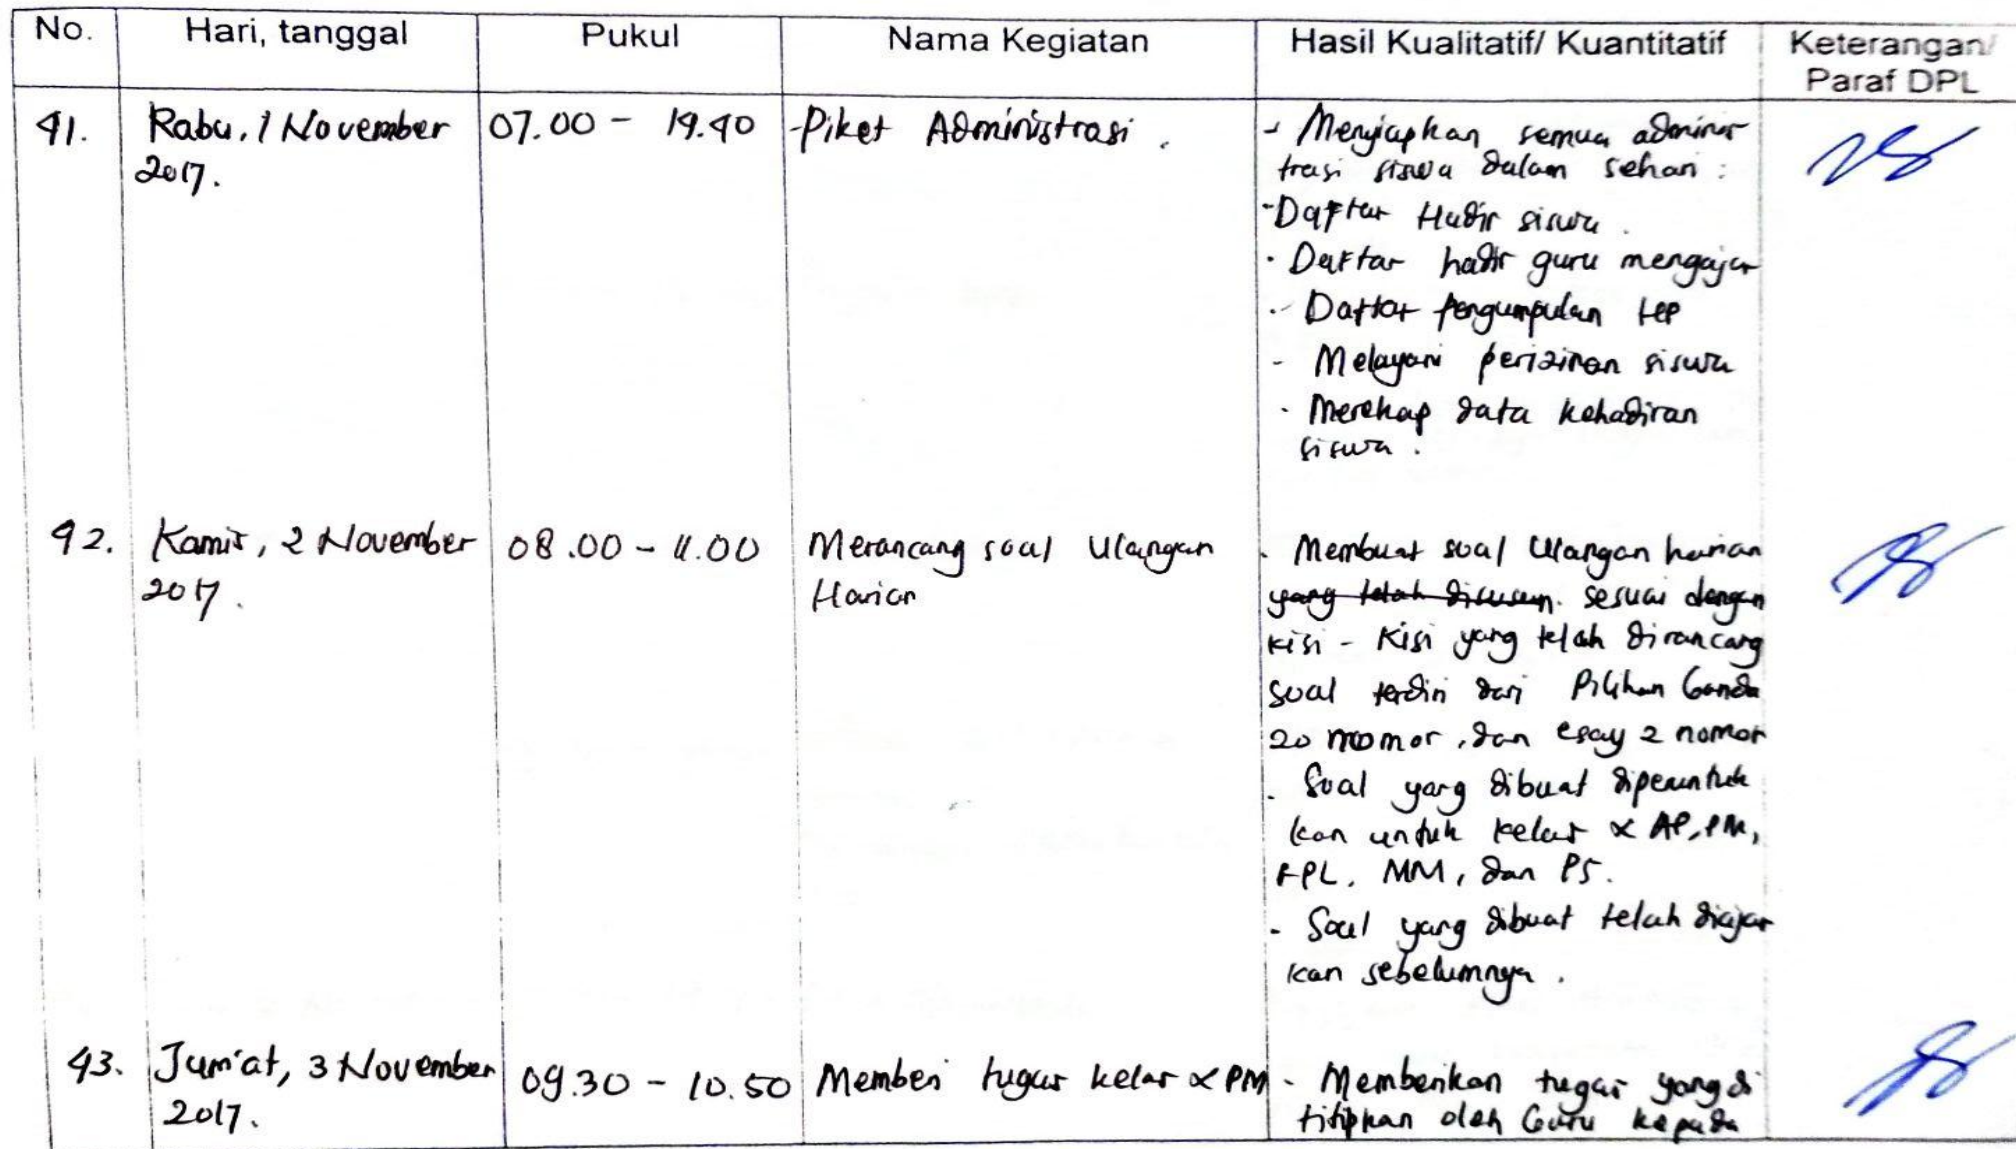 No. Hari, tanggal Pukul Nama Kegiatan Hasil Kualitatif/ Kuantitatif Keterangan/
Paraf DPL
41. Rabu, 1 November 07.00 - 14.40 -Piket Administrasi. - Menyiapkan semua adminis
2017. trasi siswa dalam sehari :
-Daftar Hadir siswa.
- Daftar hadir guru mengajar
- Daftar pengumpulan
- Melayani perizinan siswa
- Merekap data kehadiran
siswa.
42. Kamis, 2 November 08.00 - 11.00 Merancang soal Ulangan - Membuat soal Ulangan harian
2017. Harian yang telah disusun. sesuai dengan
kisi - Kisi yang telah dirancang
soal terdiri dari Pilihan Ganda
20 nomor, dan esay 2 nomor
- Soal yang dibuat diperuntuk
kan untuk kelas X AP, PM,
FPL, MM, dan PS.
- Soal yang dibuat telah diajar
kan sebelumnya.
43. Jum'at, 3 November 09.30 - 10.50 Memberi tugas kelas X PM - Memberikan tugas yang di
2017. titipkan oleh Guru kepada